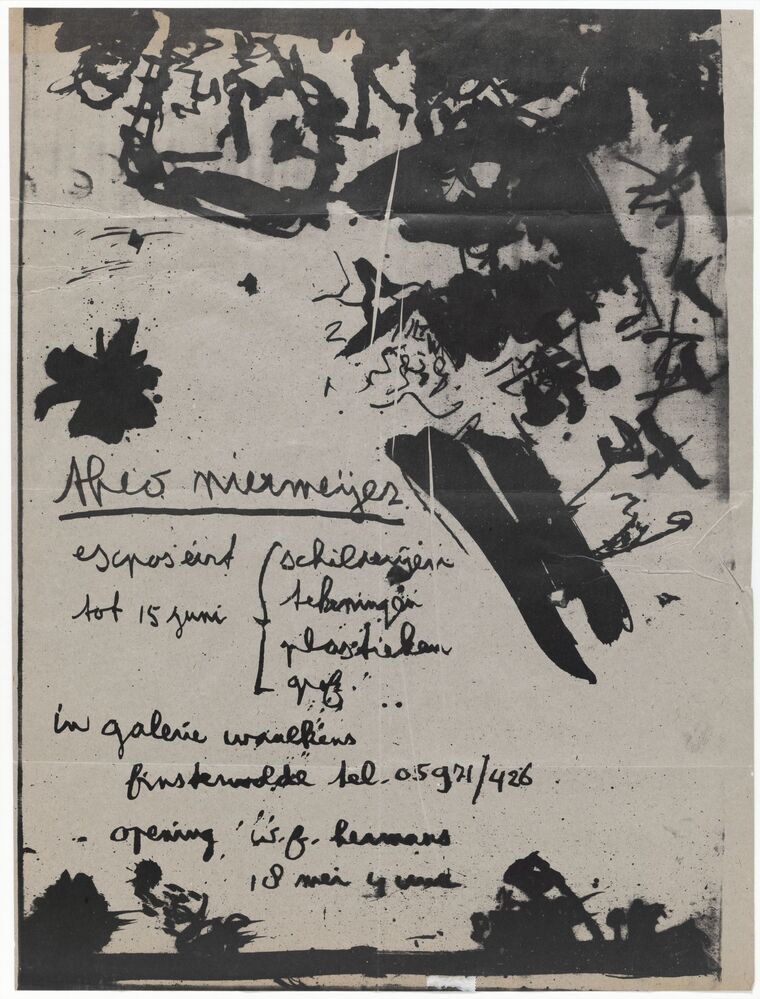 theo niermeijer
exposeert
tot 15 juni
schilderijen
tekeningen
plastieken
in galerie waalkens
finsterwolde tel. 05971/426
opening w.f. hermans
18 mei 4 uur